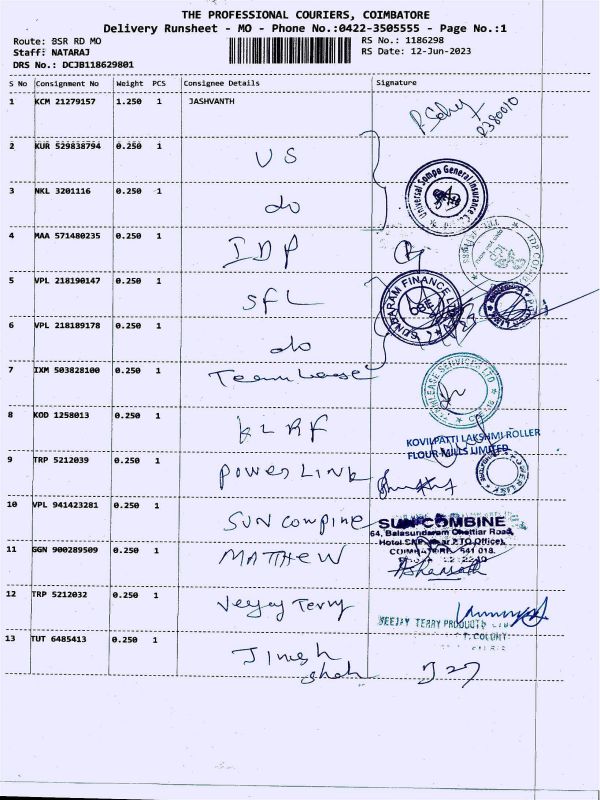 THE PROFESSIONAL COURIERS, COIMBATORE
Delivery Runsheet - MO - Phone No.:0422-3505555 - Page No.:1
Route: BSR RD MO
Staff: NATARAJ
DRS No.: DCJB118629801
RS No.: 1186298
RS Date: 12-Jun-2023
S No Consignment No Weight PCS Consignee Details Signature
1 KCM 21279157 1.250 1 JASHVANTH
2 KUR 529838794 0.250 1 US
3 NKL 3201116 0.250 1 do
Universal Sompo General Insurance
4 MAA 571480235 0.250 1 IDP
5 VPL 218190147 0.250 1 SFL
SUNDARAM FINANCE
6 VPL 218189178 0.250 1 do
7 IXM 503828100 0.250 1 Team Lease
TEAMLEASE SERVICES LTD
8 KOD 1258013 0.250 1 KLRF
KOVILPATTI LAKSHMI ROLLER
FLOUR MILLS LIMITED
9 TRP 5212039 0.250 1 Power Link
10 VPL 941423281 0.250 1 SUN Compine
SUN COMBINE
64, Balasundaram Chettiar Road,
COIMBATORE 641 018.
11 GGN 900289509 0.250 1 MATTHEW
12 TRP 5212032 0.250 1 Veejay Terry
VEEJAY TERRY PRODUCTS
T. COLONY
13 TUT 6485413 0.250 1 Jinesh
shah